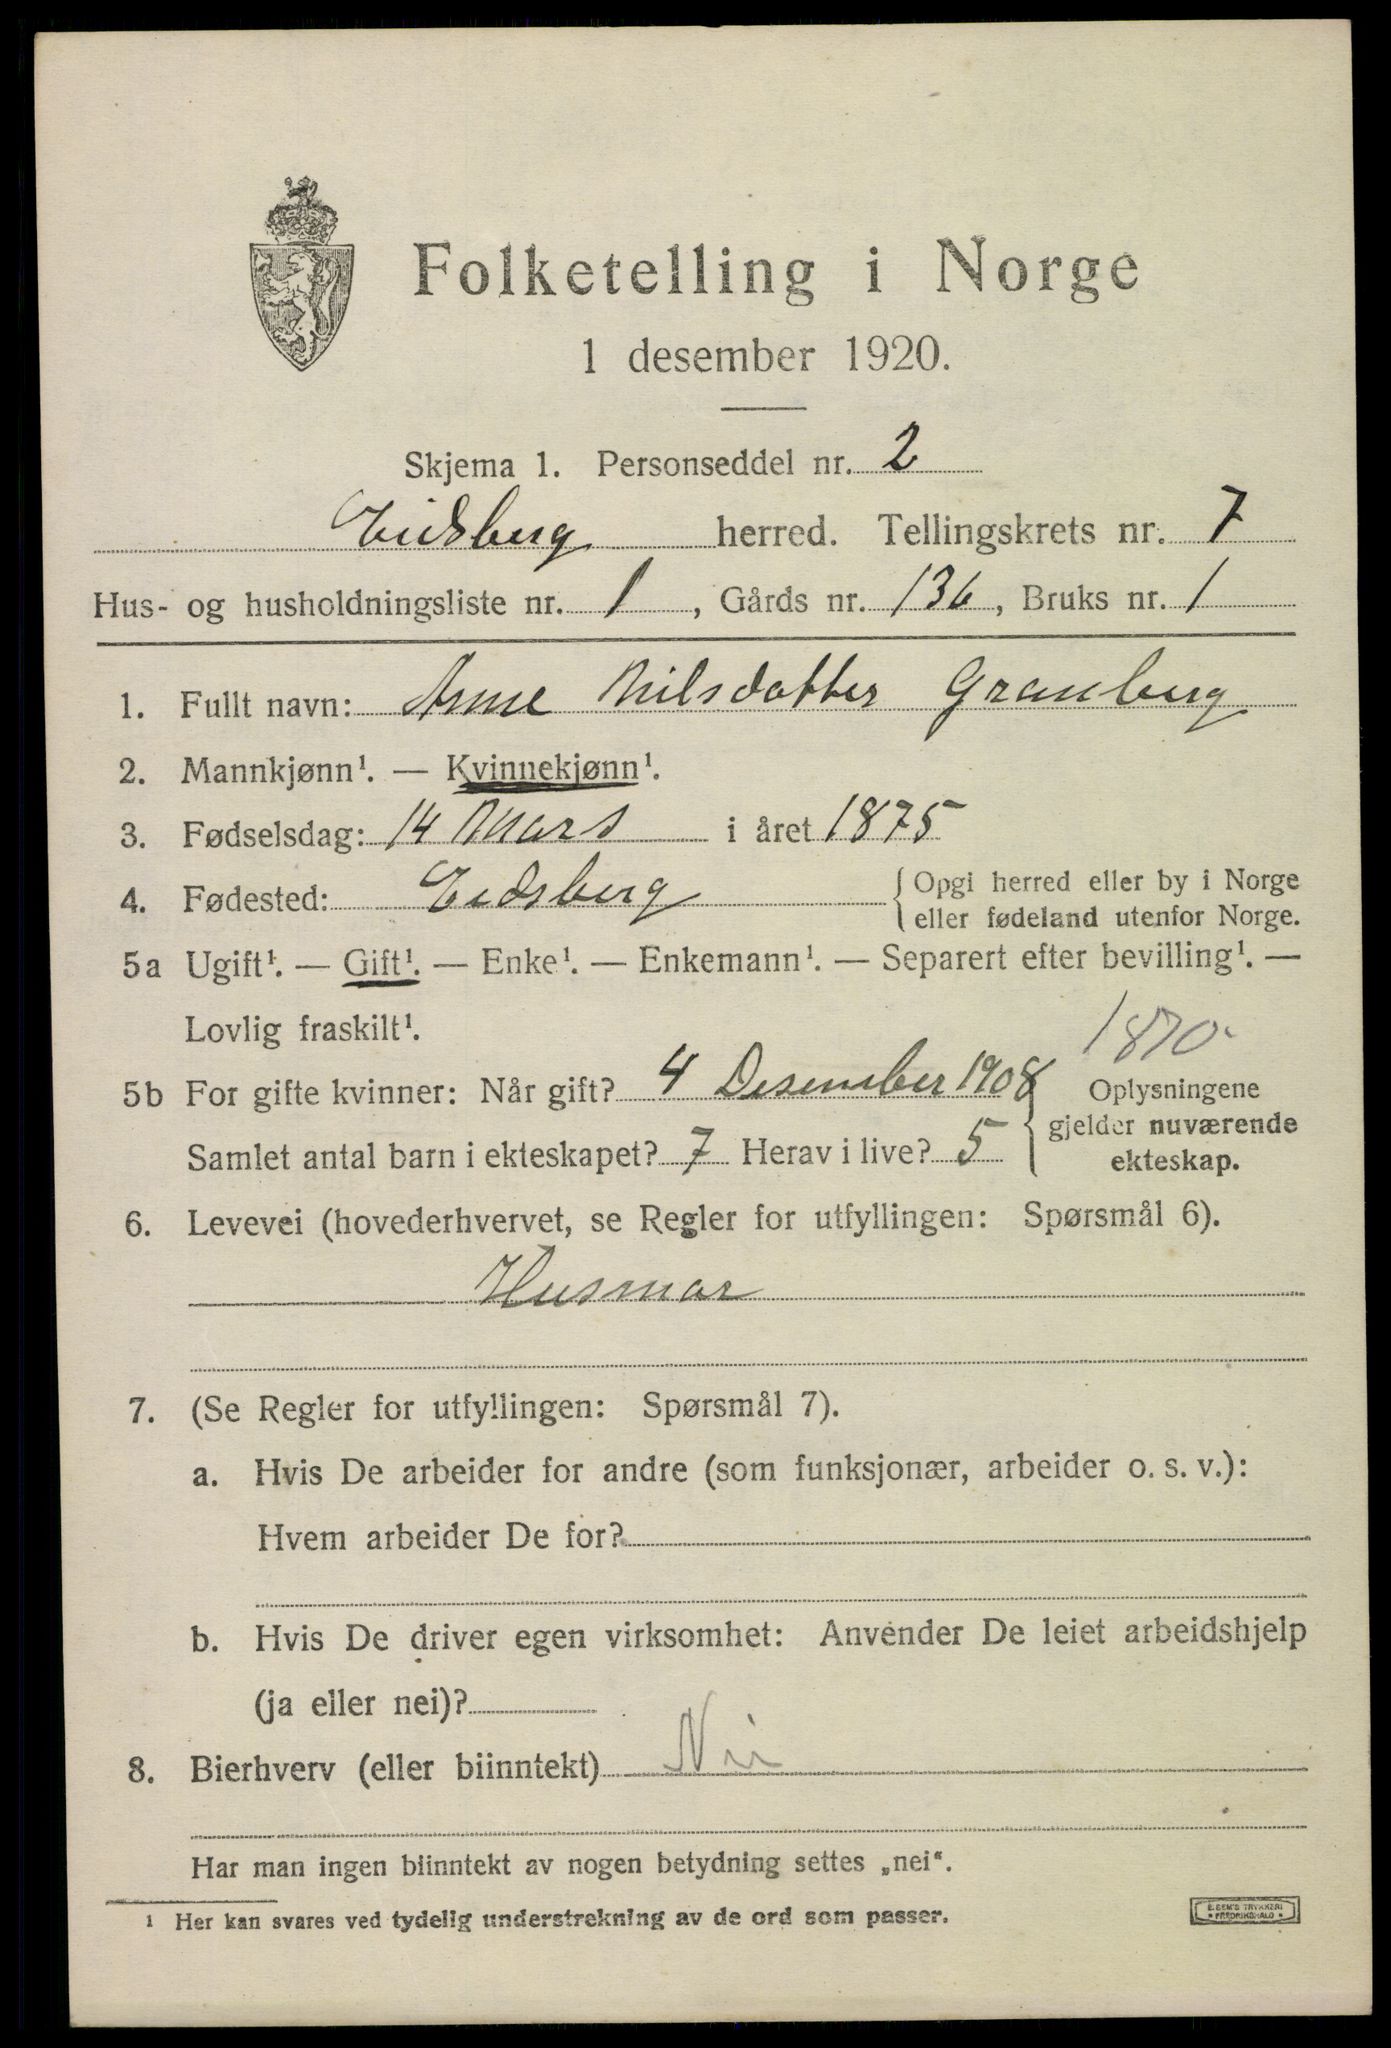 Folketelling i Norge
1 desember 1920.
Skjema 1. Personseddel nr. 2
Eidsberg herred. Tellingskrets nr. 7
Hus- og husholdningsliste nr. 1, Gårds nr. 136, Bruks nr. 1
1. Fullt navn: Anne Nilsdatter Granberg
2. Mannkjønn¹. — Kvinnekjønn¹.
3. Fødselsdag: 14 Mars i året 1875
4. Fødested: Eidsberg { Opgi herred eller by i Norge
eller fødeland utenfor Norge.
5a Ugift¹. — Gift¹. — Enke¹. — Enkemann¹. — Separert efter bevilling¹. —
Lovlig fraskilt¹.
1870
5b For gifte kvinner: Når gift? 4 Desember 1908 { Oplysningene
gjelder nuværende
Samlet antal barn i ekteskapet? 7 Herav i live? 5
ekteskap.
6. Levevei (hovederhvervet, se Regler for utfyllingen: Spørsmål 6).
Husmor
7. (Se Regler for utfyllingen: Spørsmål 7).
a. Hvis De arbeider for andre (som funksjonær, arbeider o. s. v.):
Hvem arbeider De for?
b. Hvis De driver egen virksomhet: Anvender De leiet arbeidshjelp
(ja eller nei)?
8. Bierhverv (eller biinntekt) Nei
Har man ingen biinntekt av nogen betydning settes „nei“.
¹ Her kan svares ved tydelig understrekning av de ord som passer.
E. SEM'S TRYKKERI
• FREDRIKSHALD •